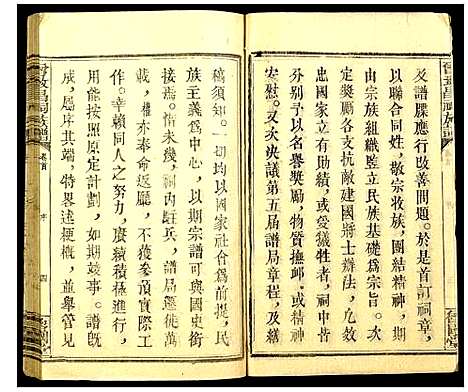 及譜牒應行改善問題。於是首訂祠章、
以聯合同姓，敬宗收族，團結精神，期
由宗族組織，豎立民族基礎為宗旨。次
定獎勵各支抗敵建國將士辦法，凡效
忠國家立有勛績，或受犧牲者，祠中皆
以名譽獎勵，物質撫卹，或精神
安慰。又次決議第五屆譜局章程，及續
稿須知。一切均以國家社會為前提，民
族主義為中心，以期宗譜可與國史銜
接焉。惜未幾，祠內駐兵，譜局遷徙萬
載，權亦奉命返廳，不獲參與實際工
作。幸賴同人之努力，賡續積極進行，
能按照原定計劃，如期竣事。譜既
成，應序其端，特畧述梗概，並舉管見
卷首
序
四